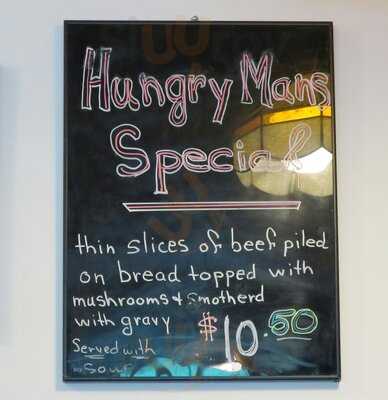 Hungry Mans
Special
thin slices of beef piled
on bread topped with
mushrooms & smotherd
with gravy $10.50
Served with